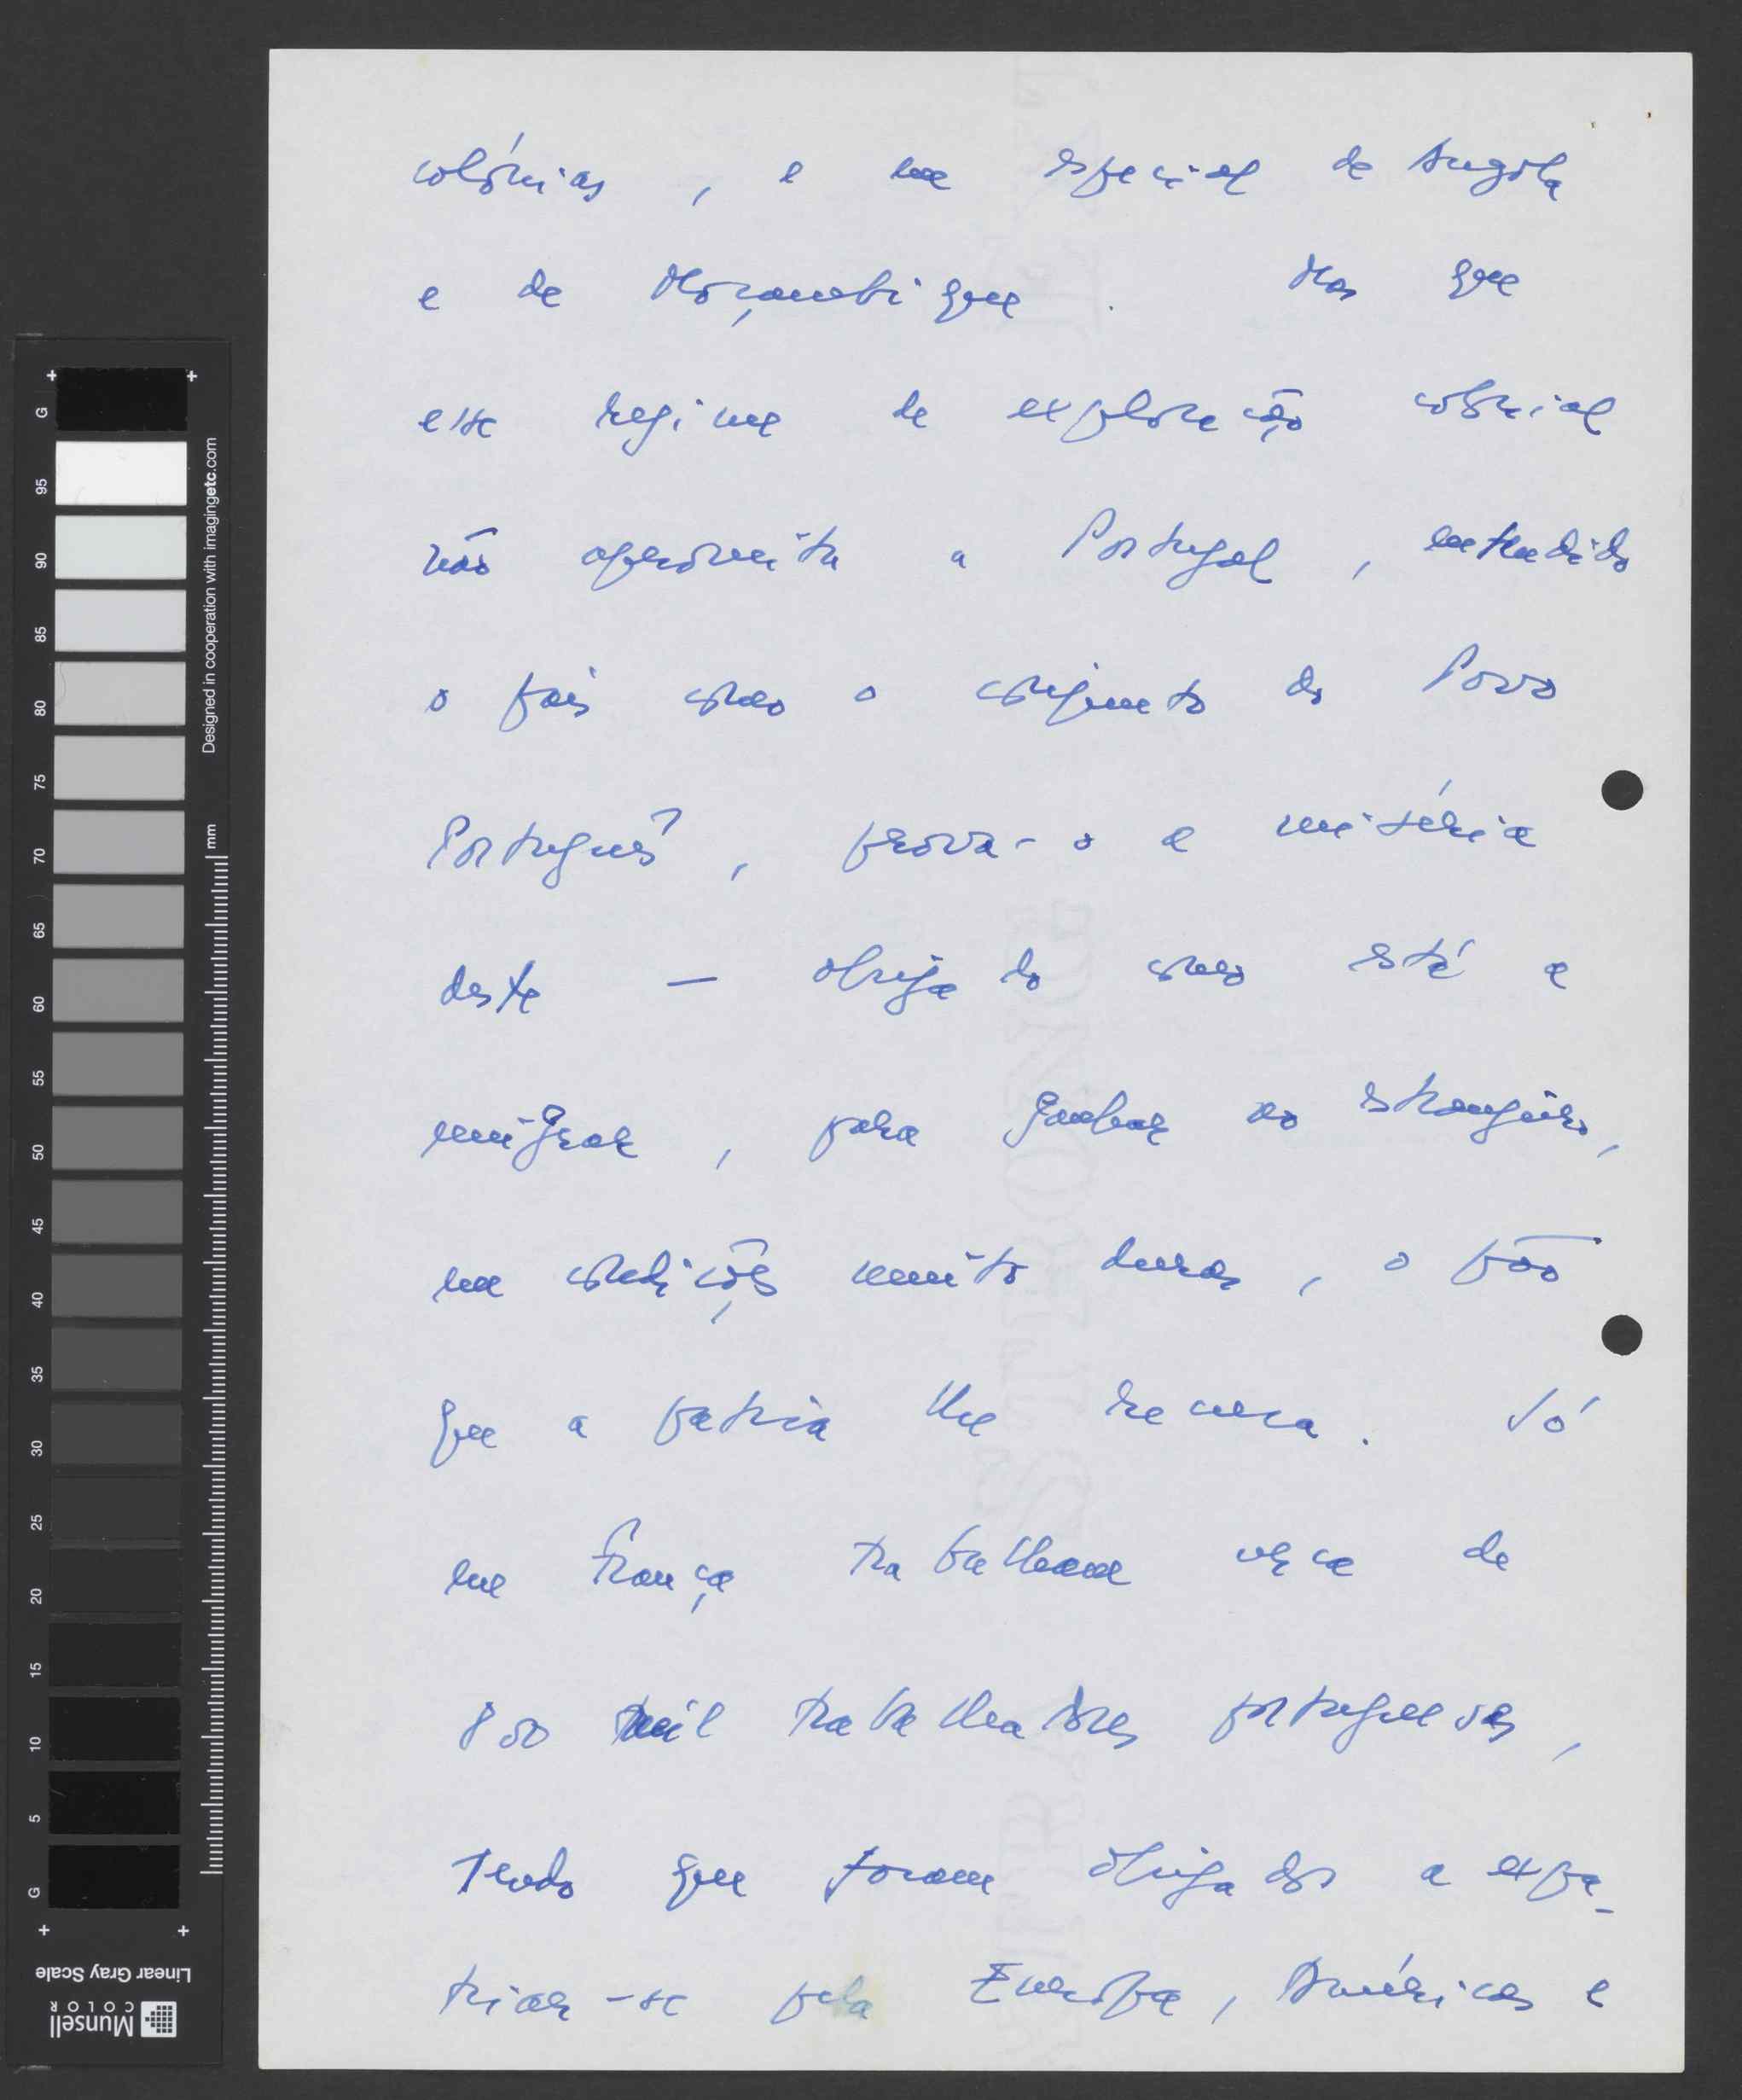 colónias, e em especial de Angola
e de Moçambique. Mas que
esse regime de exploração colonial
não aproveita a Portugal, entendido
o país como o conjunto do Povo
Português, prova-o a miséria
deste — obrigado como está a
emigrar, para ganhar no estrangeiro,
em condições muito duras, o pão
que a patria lhe recusa. Só
em França trabalham cerca de
800 mil trabalhadores portugueses,
tendo que foram obrigados a expa-
triar-se pela Europa, Américas e
G 95 90 85 80 75 70 65 60 55 50 45 40 35 30 25 20 15 10 5 G
Designed in cooperation with imagingetc.com
mm
Linear Gray Scale
Munsell
COLOR